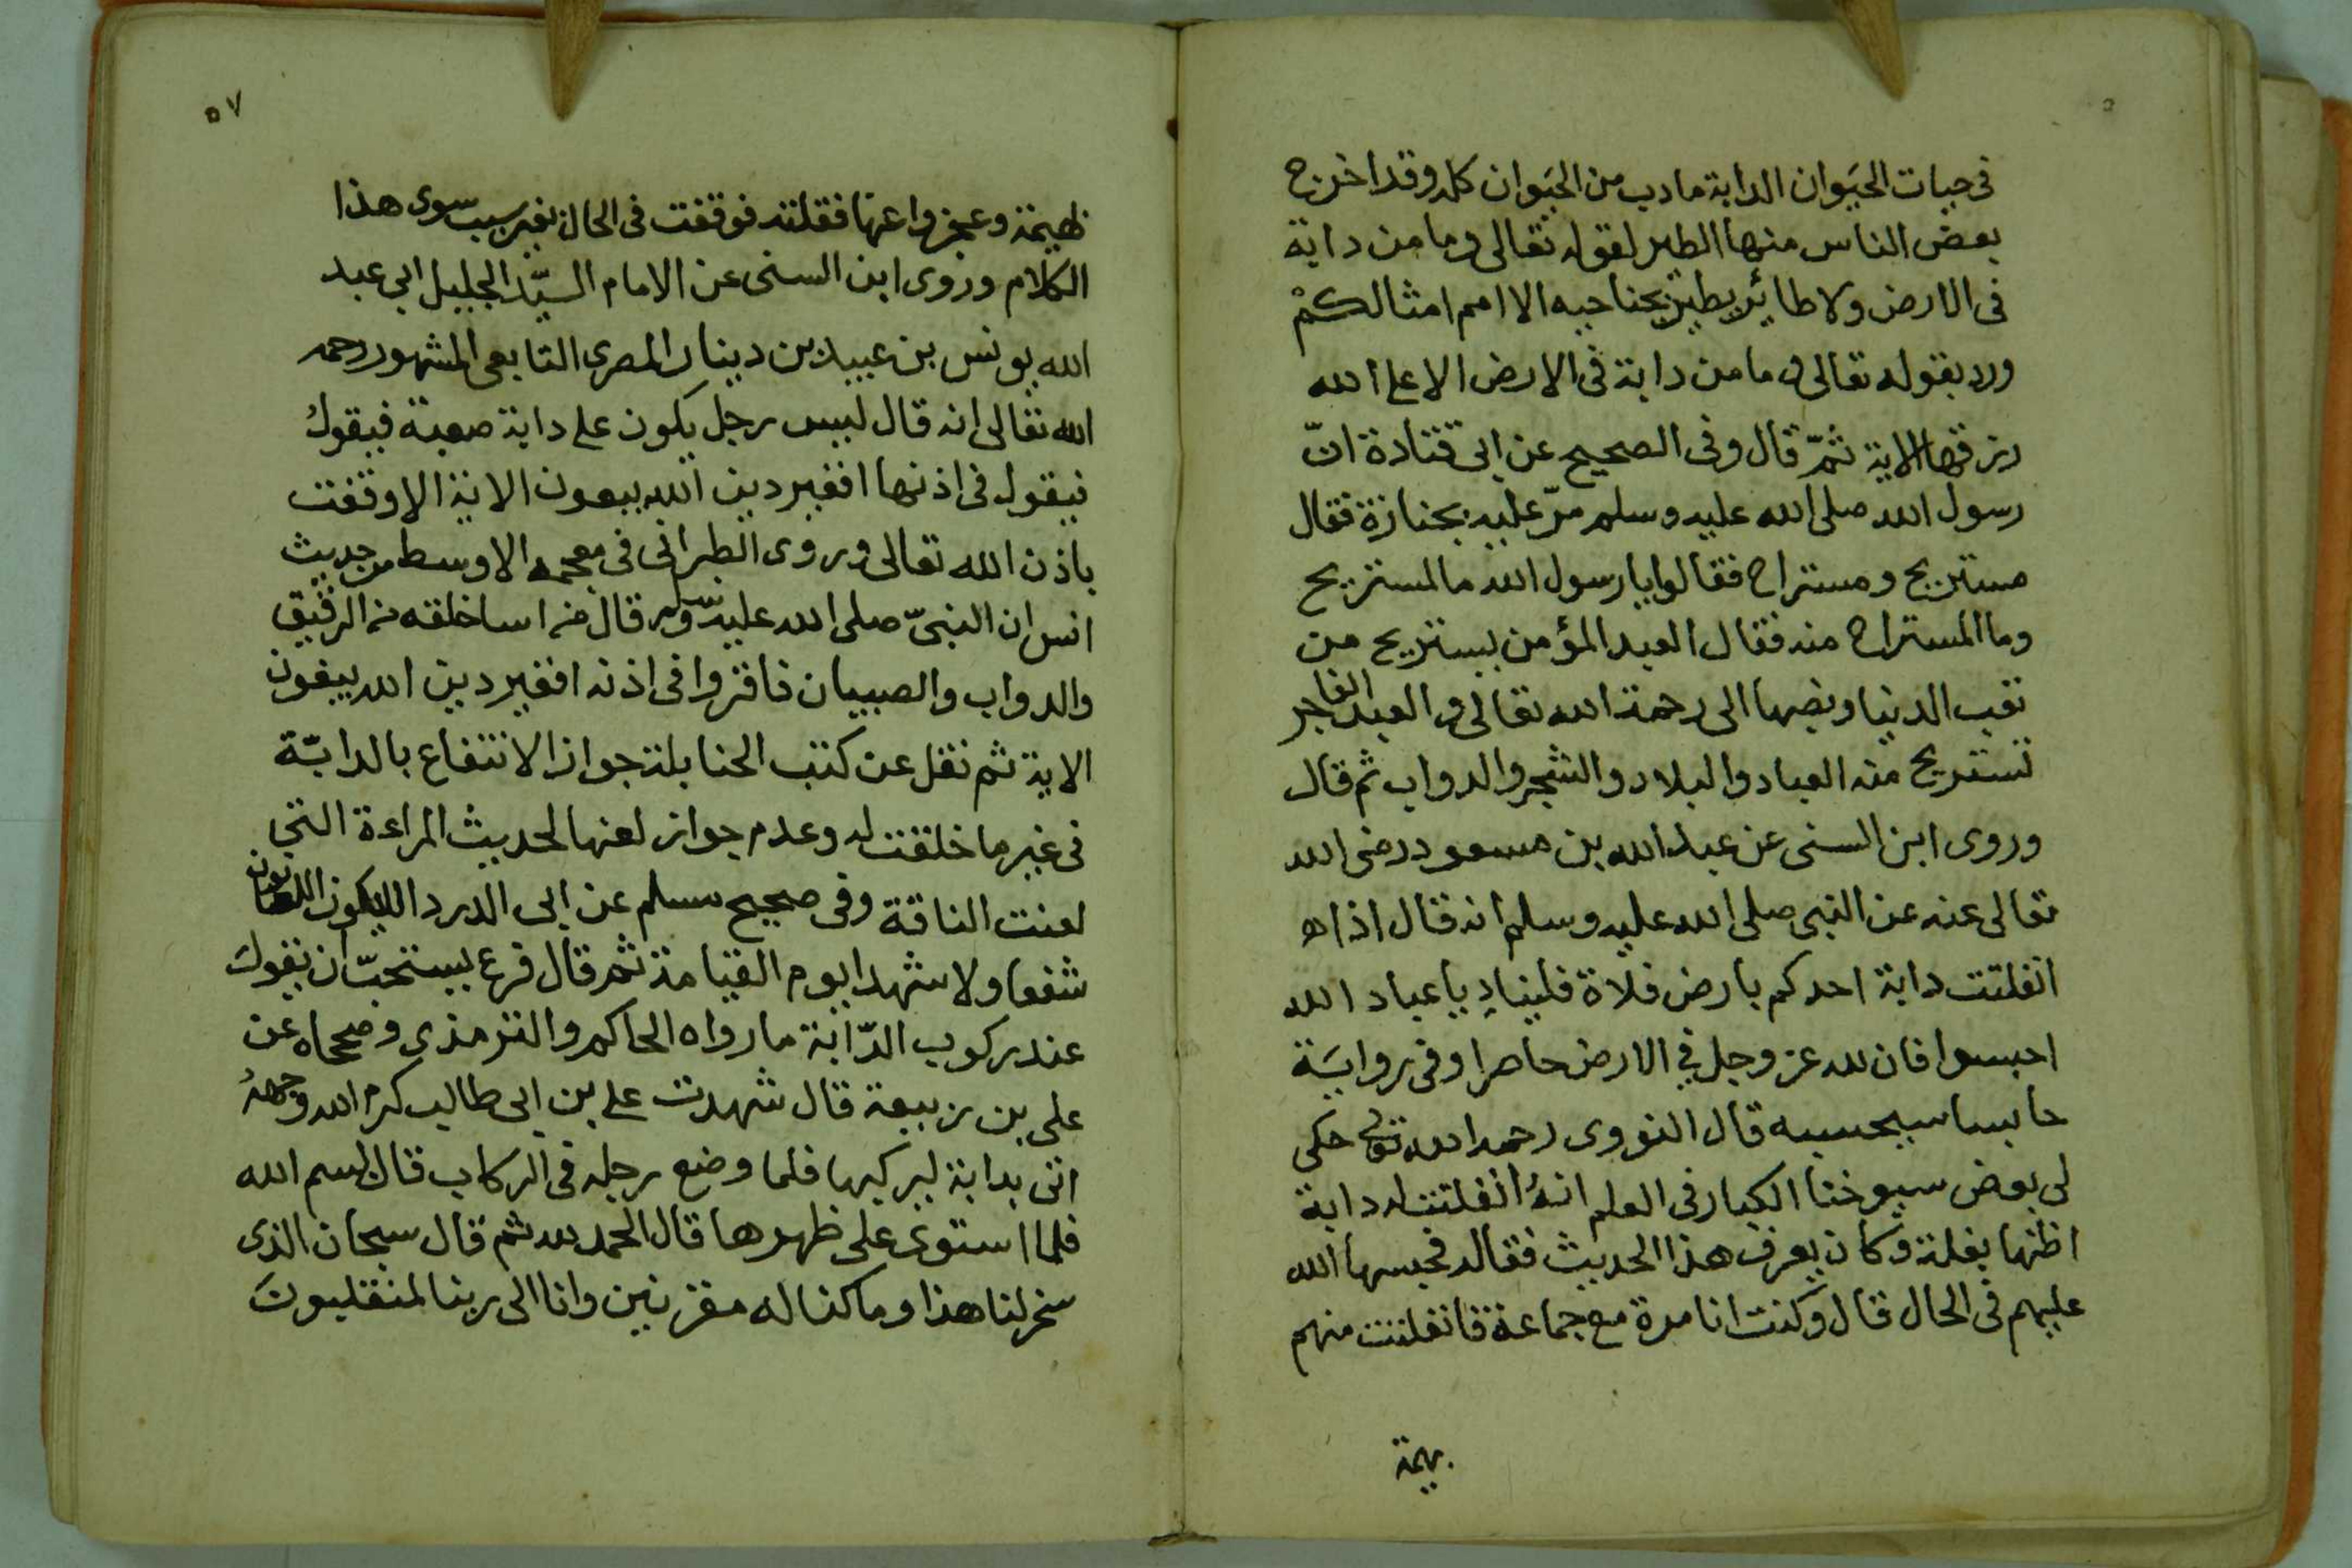 في حيات الحيَوان الدابة ما دب من الحيَوان كله وقد اخرج
بعض الناس منها الطير لقوله تعالى وما من دابة
في الارض ولا طائر يطير بجناحيه الا امم امثالكمْ
ورد بقوله تعالى وما من دابة في الارض الا على الله
رزقها الاية ثمّ قال وفى الصحيح عن ابى قتادة انّ
رسول الله صلى الله عليه وسلم مرّ عليه بجنازة فقال
مستريح ومستراح فقالوا يا رسول الله ما المستريح
وما المستراح منه فقال العبد المؤمن يستريح من
تعب الدنيا ونصبها الى رحمة الله تعالى والعبد الفاجر
تستريح منه العباد والبلاد والشجر والدواب ثم قال
وروى ابن السنى عن عبد الله بن مسعود رضى الله
تعالى عنه عن النبى صلى الله عليه وسلم انه قال اذا ه
انفلتت دابة احدكم بارض فلاة فلينادِ يا عباد الله
احبسوا فان لله عز وجل في الارض حاصرا وفى روايَة
حابسا سيحبسه قال النووى رحمه الله تعالى حكى
لى بعض سيوخنا الكبار فى العلم انهُ انفلتت له دابة
اظنها بغلة وكان يعرف هذا الحديث فقاله فحبسها الله
عليهم في الحال قال وكنت انا مرة مع جماعة فانفلتت منهم
بهيمة
٥٧
بهيمة وعجزوا عنها فقلته فوقفت فى الحال بغير سبب سوى هذا
الكلام وروى ابن السنى عن الامام السيّد الجليل ابى عبد
الله يونس بن عبيد بن دينار المصرى التابعى المشهور رحمه
الله تعالى انه قال ليس رجل يكون على دابة صعبة فيقول
فيقول فى اذنها افغير دين الله يبغون الاية الا وقفت
باذن الله تعالى وروى الطبرانى فى معجمه الاوسط من حديث
انس ان النبىّ صلى الله عليه وسلم قال من اسا خلقه من الرقيق
والدواب والصبيان فاقروا فى اذنه افغير دين الله يبغون
الاية ثم نقل عن كتب الحنابلة جواز الانتفاع بالدابّة
فى غير ما خلقت له وعدم جواز لعنها لحديث المراءة التى
لعنت الناقة وفى صحيح مسلم عن ابى الدردا لا يكون اللعانون
شفعا ولا شهدا يوم القيامة ثم قال فرع يستحبّ ان يقول
عند ركوب الدّابة ما رواه الحاكم والترمذى وصححاه عن
على بن ربيعة قال شهدت على بن ابى طالب كرم الله وجههُ
اتى بدابة ليركبها فلما وضع رجله فى الركاب قال بسم الله
فلما استوى على ظهرها قال الحمد لله ثم قال سبحان الذى
سخر لنا هذا وما كنا له مقرنين وانا الى ربنا لمنقلبونَ